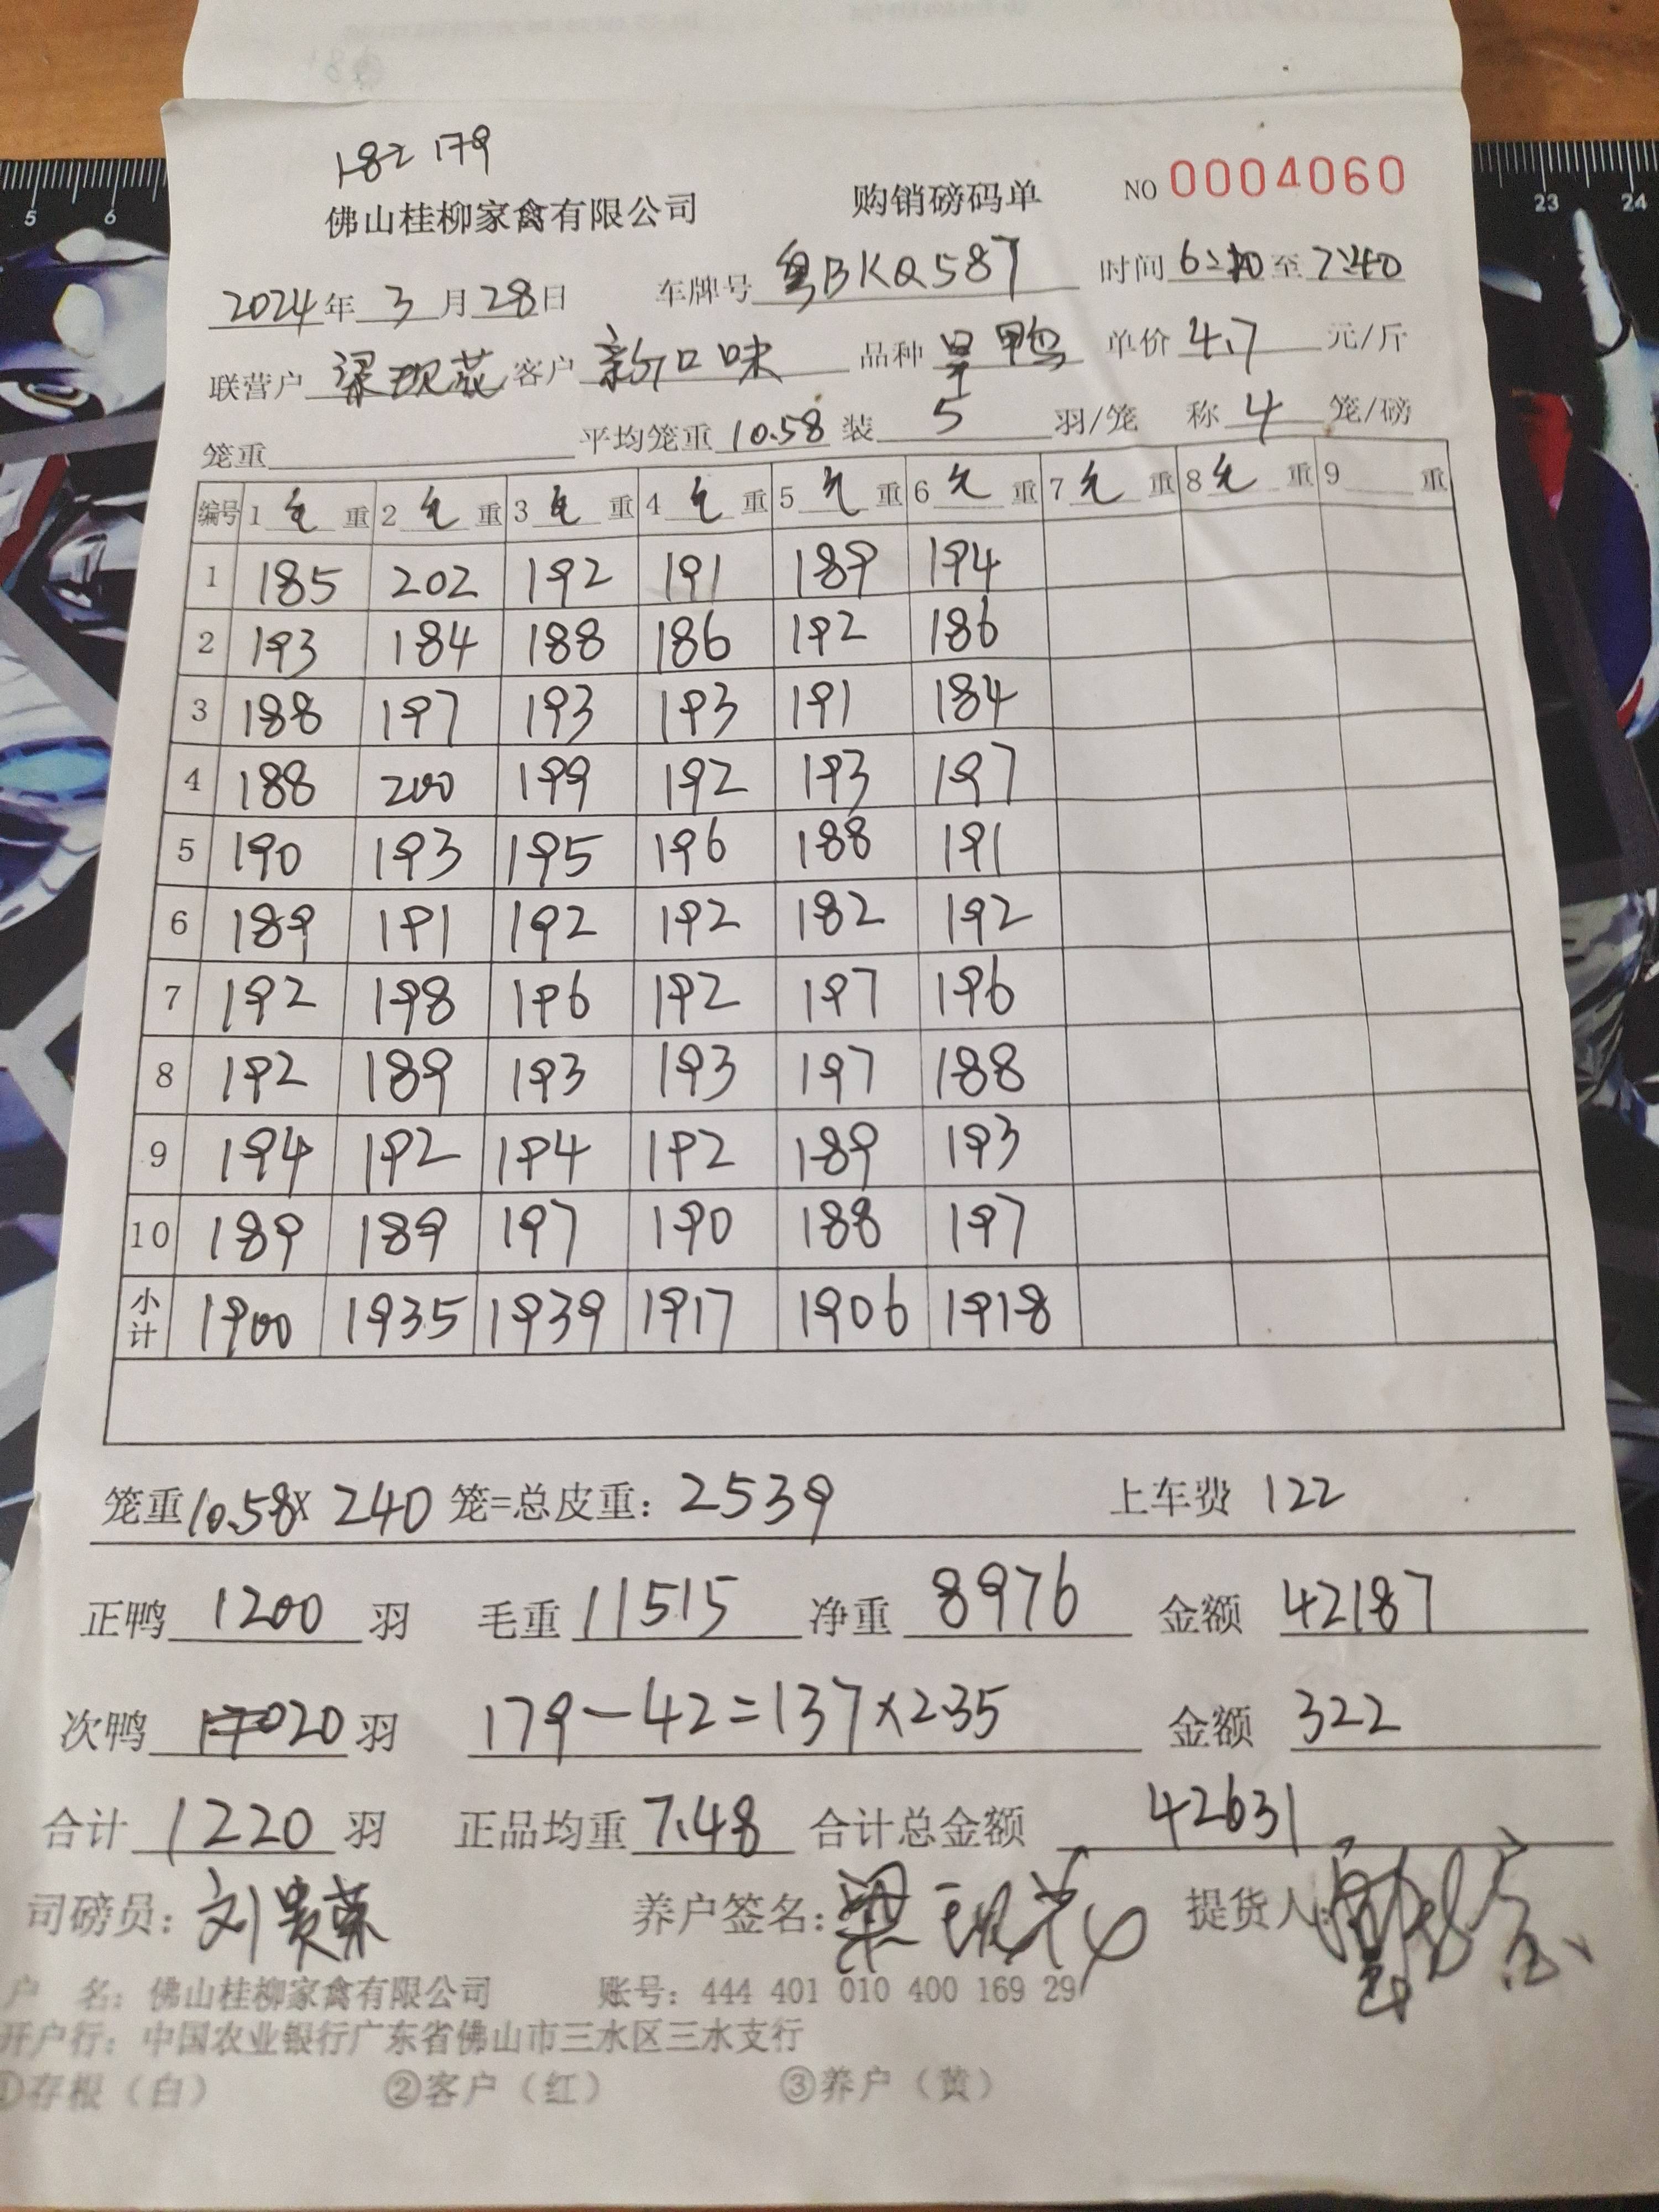 182 179
佛山桂柳家禽有限公司 购销磅码单 NO 0004060
2024年 3 月 28日 车牌号 粤BKQ587 时间 6:10 至 7:40
联营户 梁现 客户 新口味 品种 旱鸭 单价 4.7 元/斤
笼重 平均笼重 10.58 装 5 羽/笼 称 4 笼/磅
编号 1 毛 重 2 毛 重 3 毛 重 4 毛 重 5 毛 重 6 毛 重 7 毛 重 8 毛 重 9 重
1 185 202 192 191 189 194
2 193 184 188 186 192 186
3 188 197 193 193 191 184
4 188 200 199 192 193 197
5 190 193 195 196 188 191
6 189 191 192 192 182 192
7 192 198 196 192 197 196
8 192 189 193 193 197 188
9 194 192 194 192 189 193
10 189 189 197 190 188 197
小计 1900 1935 1939 1917 1906 1918
笼重10.58X 240 笼=总皮重: 2539 上车费 122
正鸭 1200 羽 毛重 11515 净重 8976 金额 42187
次鸭 20 羽 179-42=137×2.35 金额 322
合计 1220 羽 正品均重 7.48 合计总金额 42631
司磅员: 刘贵荣 养户签名: 梁现 提货人:
户 名: 佛山桂柳家禽有限公司 账号: 444 401 010 400 169 29
开户行: 中国农业银行广东省佛山市三水区三水支行
①存根(白) ②客户(红) ③养户(黄)